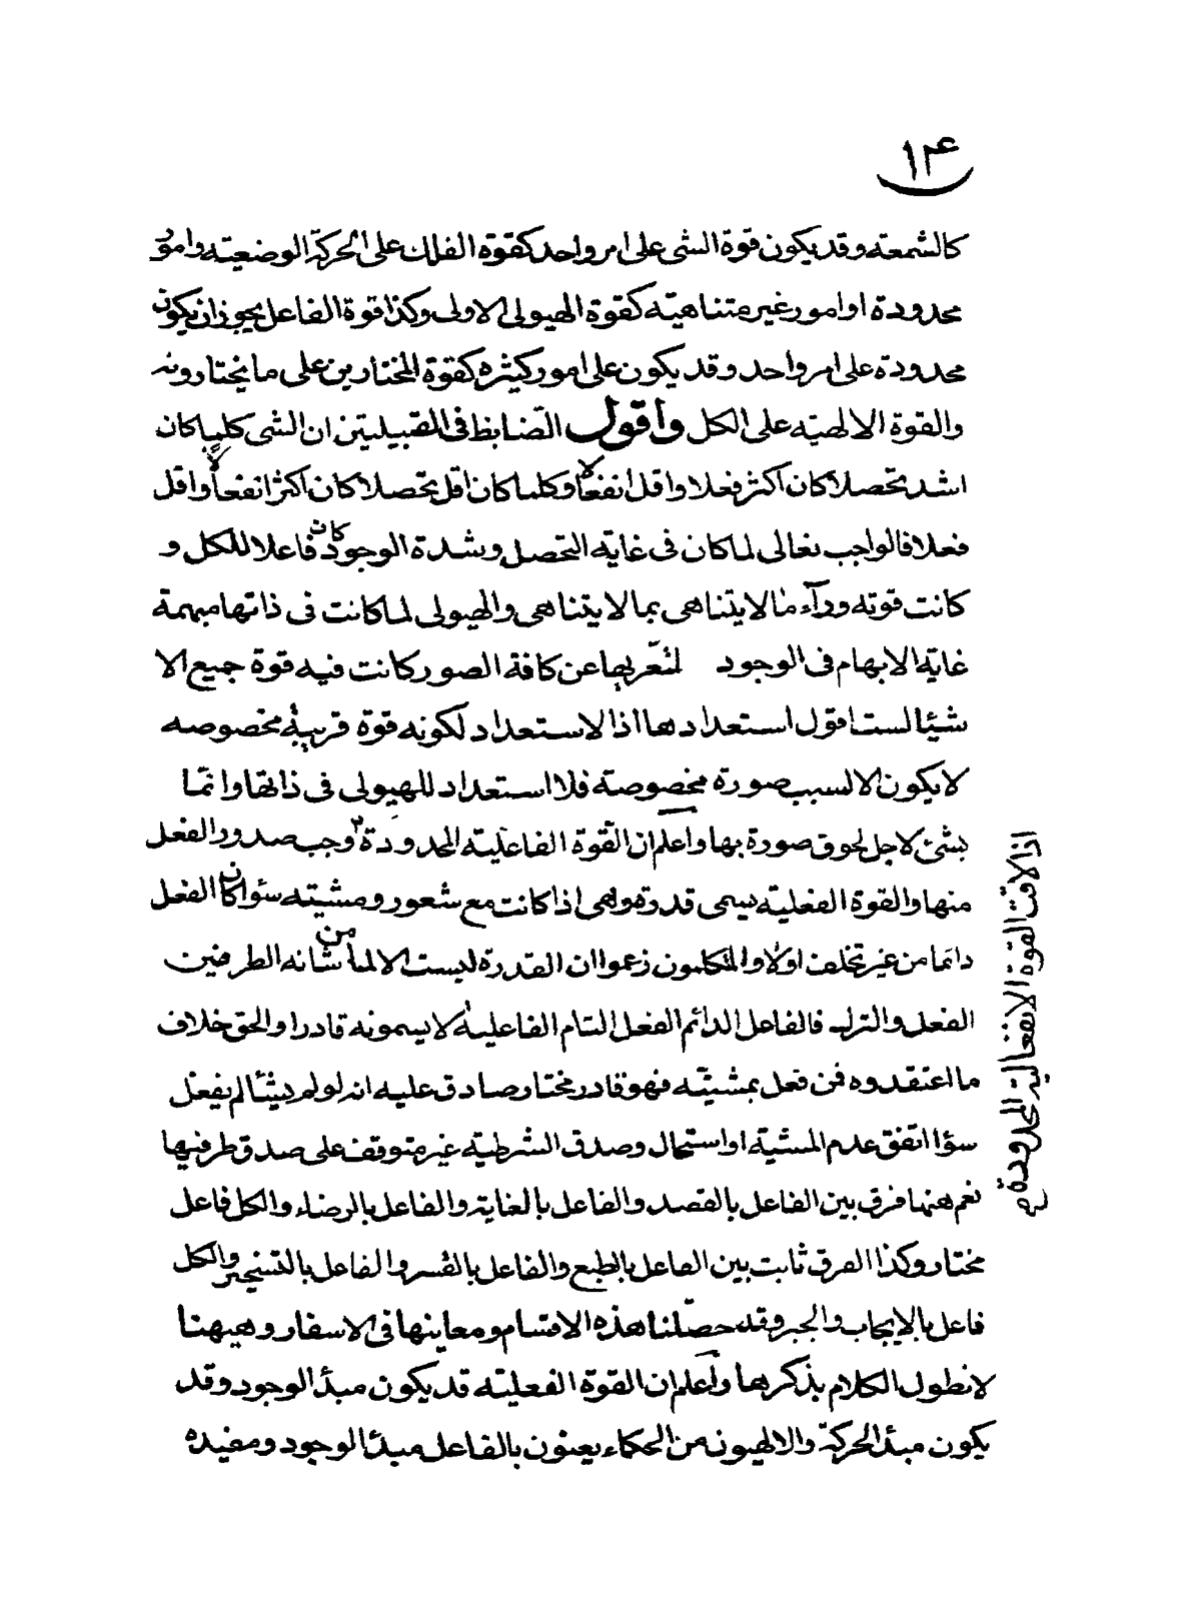 ١٤
كالشمعه وقد يكون قوة الشى على امر واحد كقوة الفلك على الحركة الوضعيته وامور
محدودة او امور غير متناهيته كقوة الهيولى الاولى وكذا قوة الفاعل يجوز ان يكون
محدودة على امر واحد وقد يكون على امور كثيره كقوة المختارين على ما يختارونه
والقوة الالهيته على الكل واقول الضابط فى القبيليتين ان الشى كلما كان
اشد تحصلا كان اكثر فعلا واقل انفعالا وكلما كان اقل تحصلا كان اكثر انفعالا واقل
فعلا فالواجب تعالى لما كان فى غايته التحصل وشدة الوجود كان فاعلا للكل و
كانت قوته ورآء ما لا يتناهى بما لا يتناهى والهيولى لما كانت فى ذاتها مبهمة
غاية الابهام فى الوجود لتعريها عن كافة الصور كانت فيه قوة جميع الا
شيئا لست اقول استعدادها اذ الاستعداد لكونه قوة قريبة مخصوصه
لا يكون الا لسبب صورة مخصوصته فلا استعداد للهيولى فى ذاتها وانما
بشئ لاجل لحوق صورة بها واعلم ان القوة الفاعليته المحدودة ٢ وجب صدور الفعل
منها والقوة الفعليته يسمى قدرة وهى اذا كانت مع شعور ومشيته سؤا كان الفعل
دائما من غير تخلف اولا والمتكلمون زعموا ان القدرة ليست الا لما من شانه الطرفين
الفعل والترك فالفاعل الدائم الفعل التام الفاعلية لا يسمونه قادرا والحق خلاف
ما اعتقدوه فمن فعل بمشيته فهو قادر مختار صادق عليه انه لو لم يشأ لم يفعل
سؤا اتفق عدم المشية او استحال وصدق الشرطيته غير متوقف على صدق طرفيها
نعم ههنا فرق بين الفاعل بالقصد والفاعل بالغاية والفاعل بالرضاء والكل فاعل
مختار وكذا الفرق ثابت بين الفاعل بالطبع والفاعل بالقسر والفاعل بالتسخير والكل
فاعل بالايجاب والجبر وقد حصلنا هذه الاقسام ومعاينها فى الاسفار وهيهنا
لا نطول الكلام بذكرها واعلم ان القوة الفعليته قد يكون مبدأ الوجود وقد
يكون مبدأ الحركة والالهيون من الحكماء يعنون بالفاعل مبدأ الوجود ومفيده
اذا لاقت القوة الانفعالية المحدودة